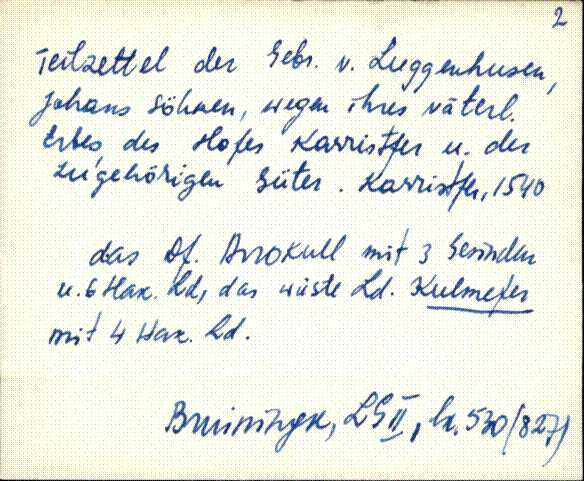 2
Teilzettel der Gebr. v. Luggenhusen,
Johans Söhnen, wegen ihres väterl.
Erbes, des Hofes Karristfer u. der
zugehörigen Güter. Karristfer, 1540
das Df. Arrokull mit 3 Gesinden
u. 6 Hak. Ld, das wüste Ld. Kulmefer
mit 4 Hak. Ld.
Bruiningk, LG II, 530 (827)